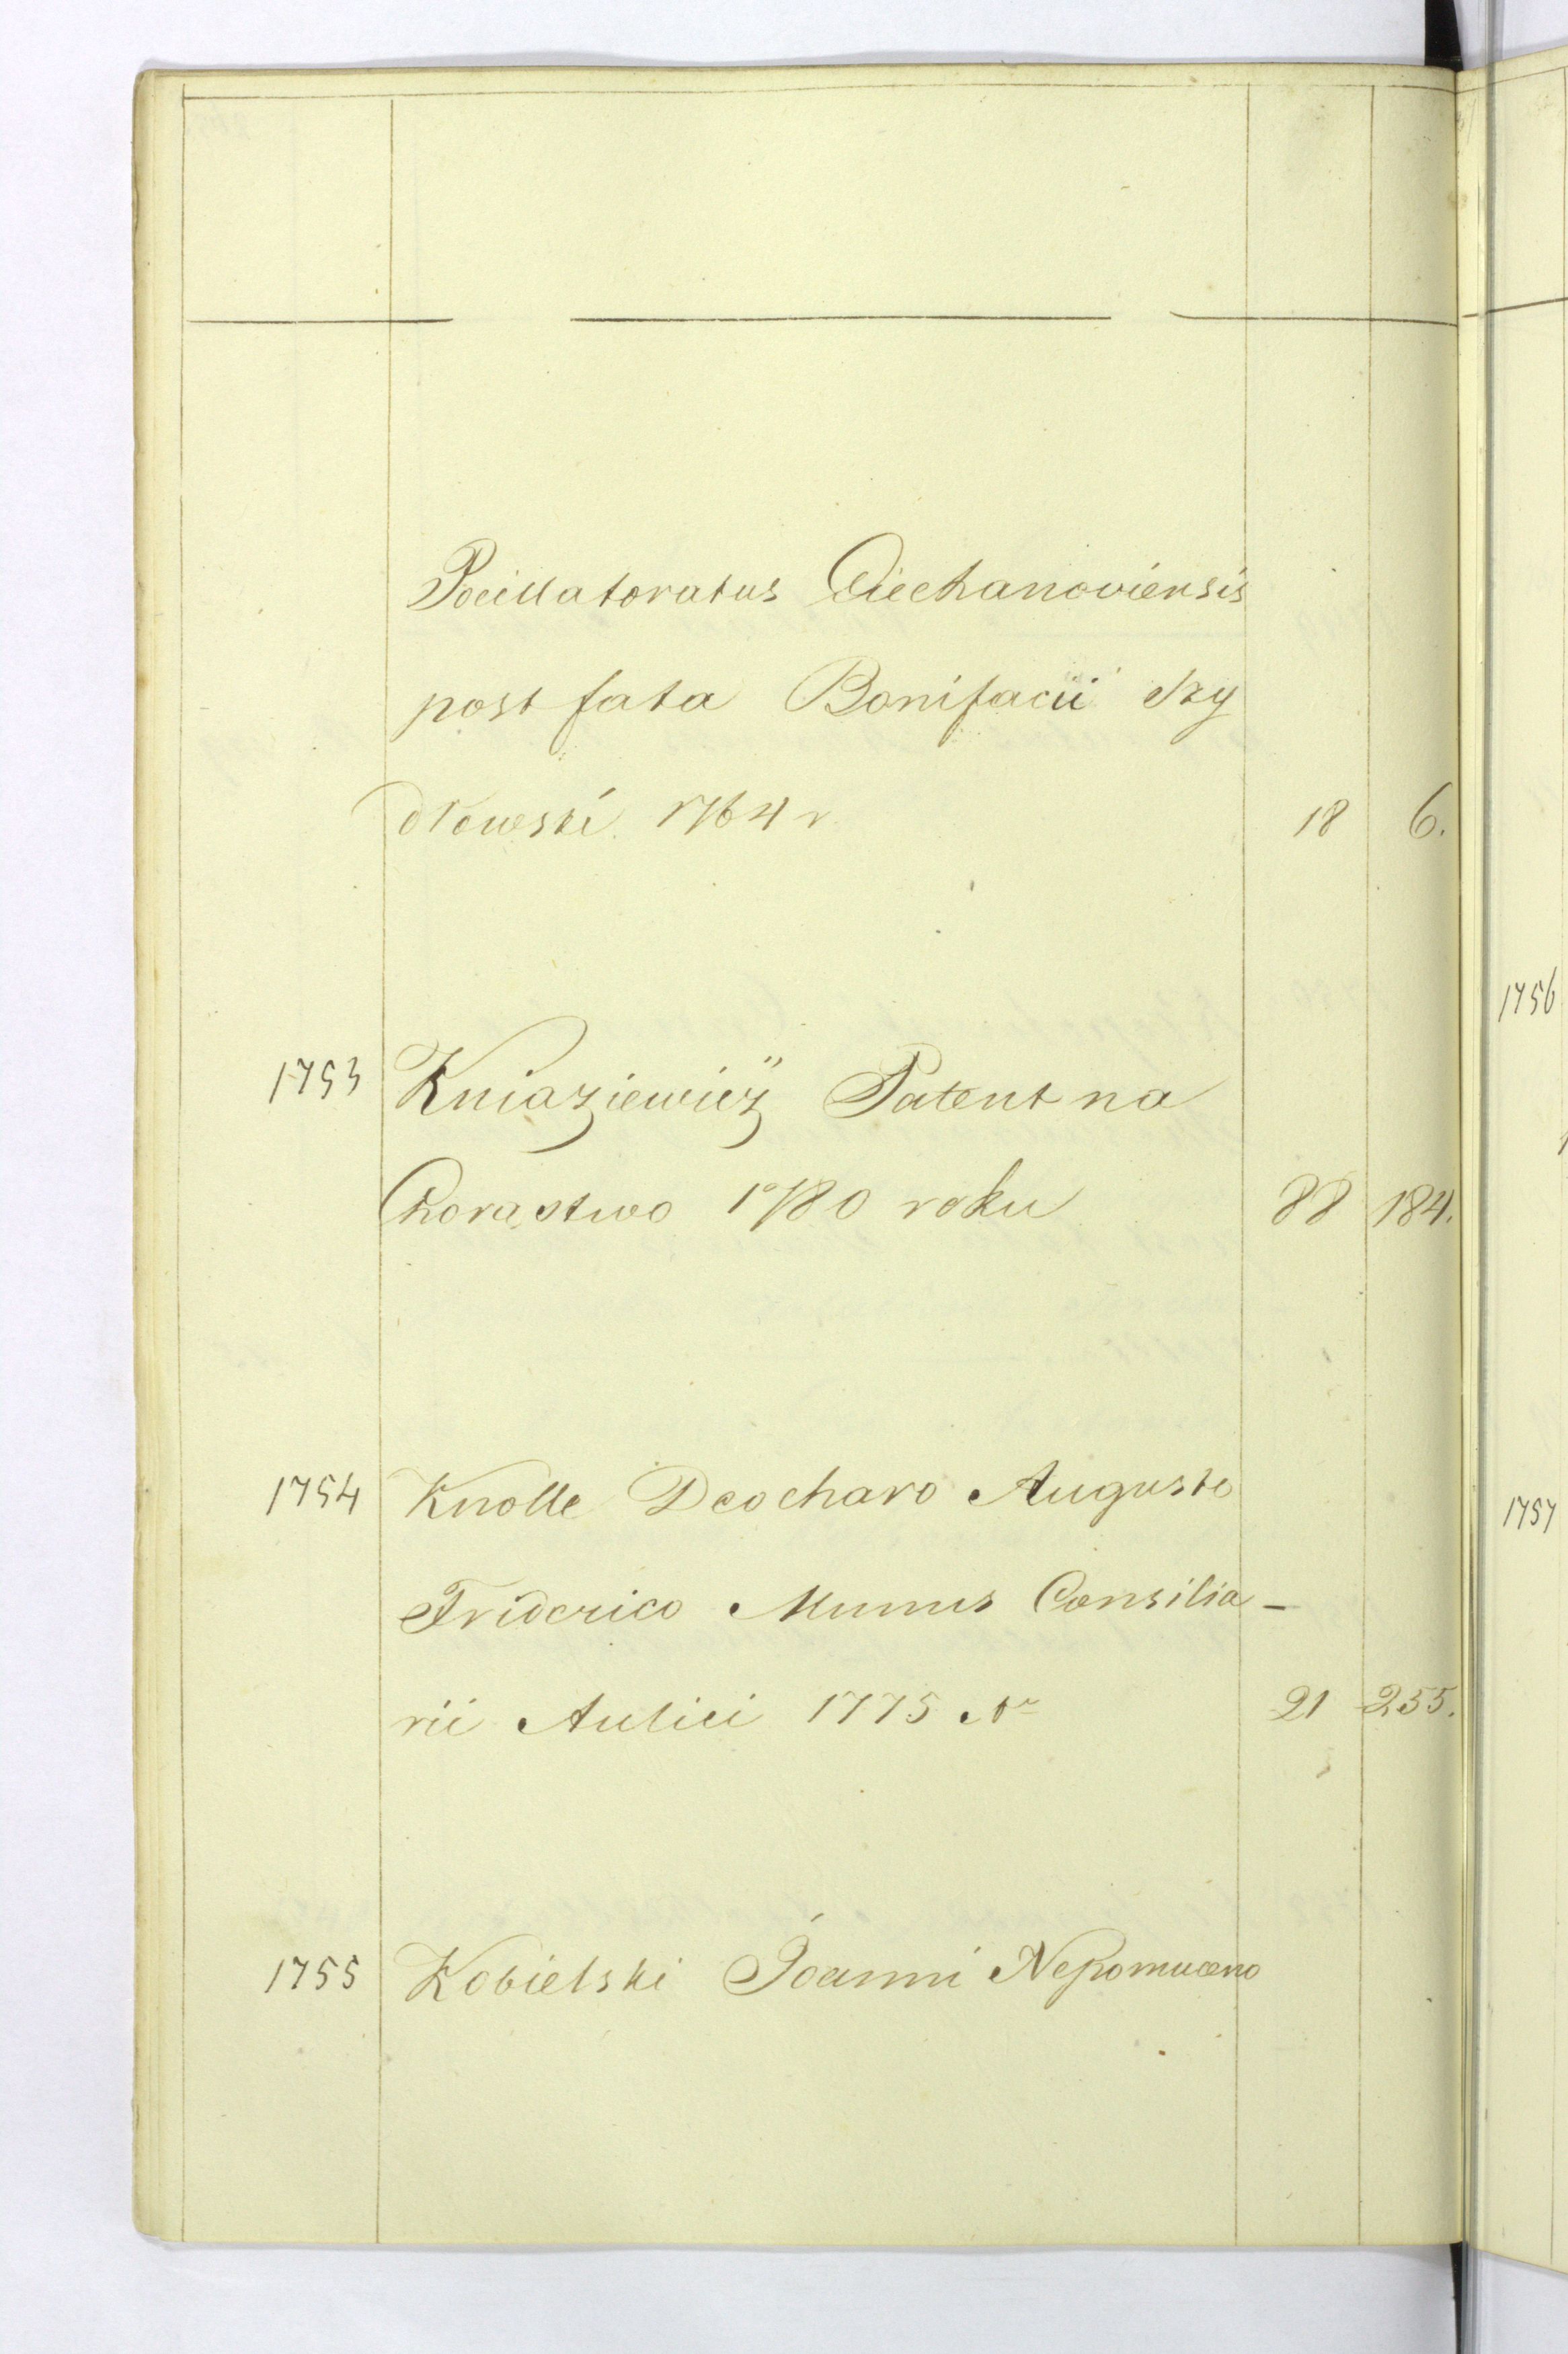 Pocillatoratus Ciechanoviensis
post fata Bonifacii Szy
dłowski 1764 r 18 6.
1753 Kniaziewicz Patent na
Chorąstwo 1780 roku 88 184.
1754 Knolle Deocharo Augusto
Friderico Munus Consilia-
rii Aulici 1775 Ao 21 255.
1755 Kobielski Joanni Nepomuceno
1756
1757